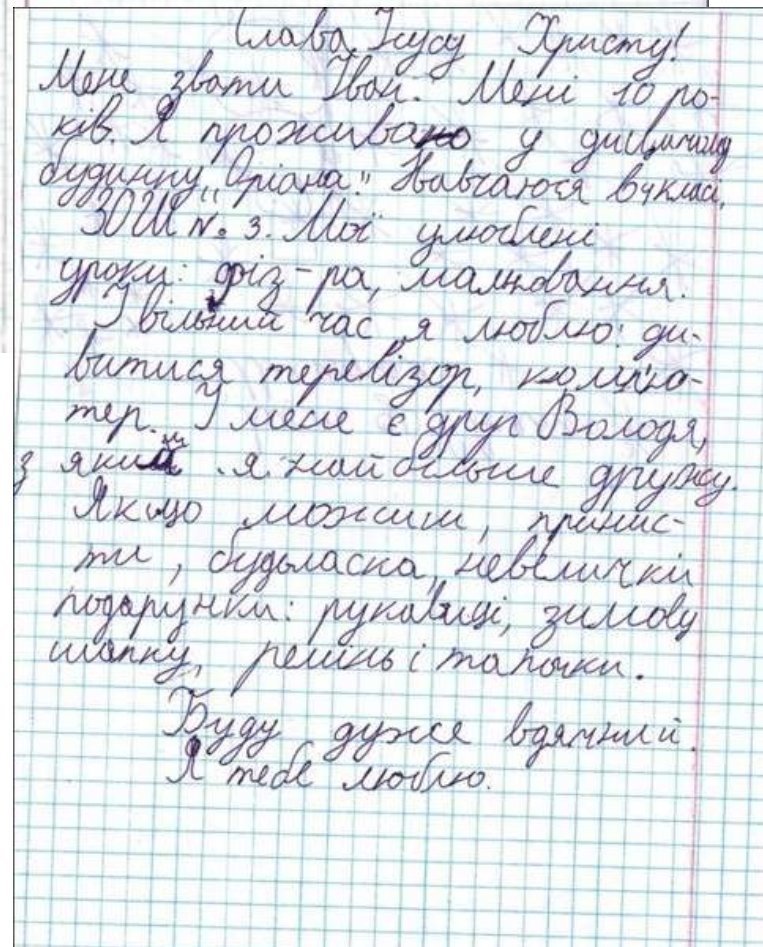 Слава Ісусу Христу!
Мене звати Іван. Мені 10 ро-
ків. Я проживаю у дитячому
будинку „Оріана." Навчаюся в 4 класі,
ЗОШ № 3. Мої улюблені
уроки: фіз-ра, малювання.
У вільний час я люблю: ди-
витися телевізор, комп'ю-
тер. У мене є друг Володя,
з яким я найбільше дружу.
Якщо можиш, принис-
ти, будьласка, невеличкі
подарунки: рукавиці, зимову
шапку, ремінь і тапочки.
Буду дуже вдячний.
Я тебе люблю.